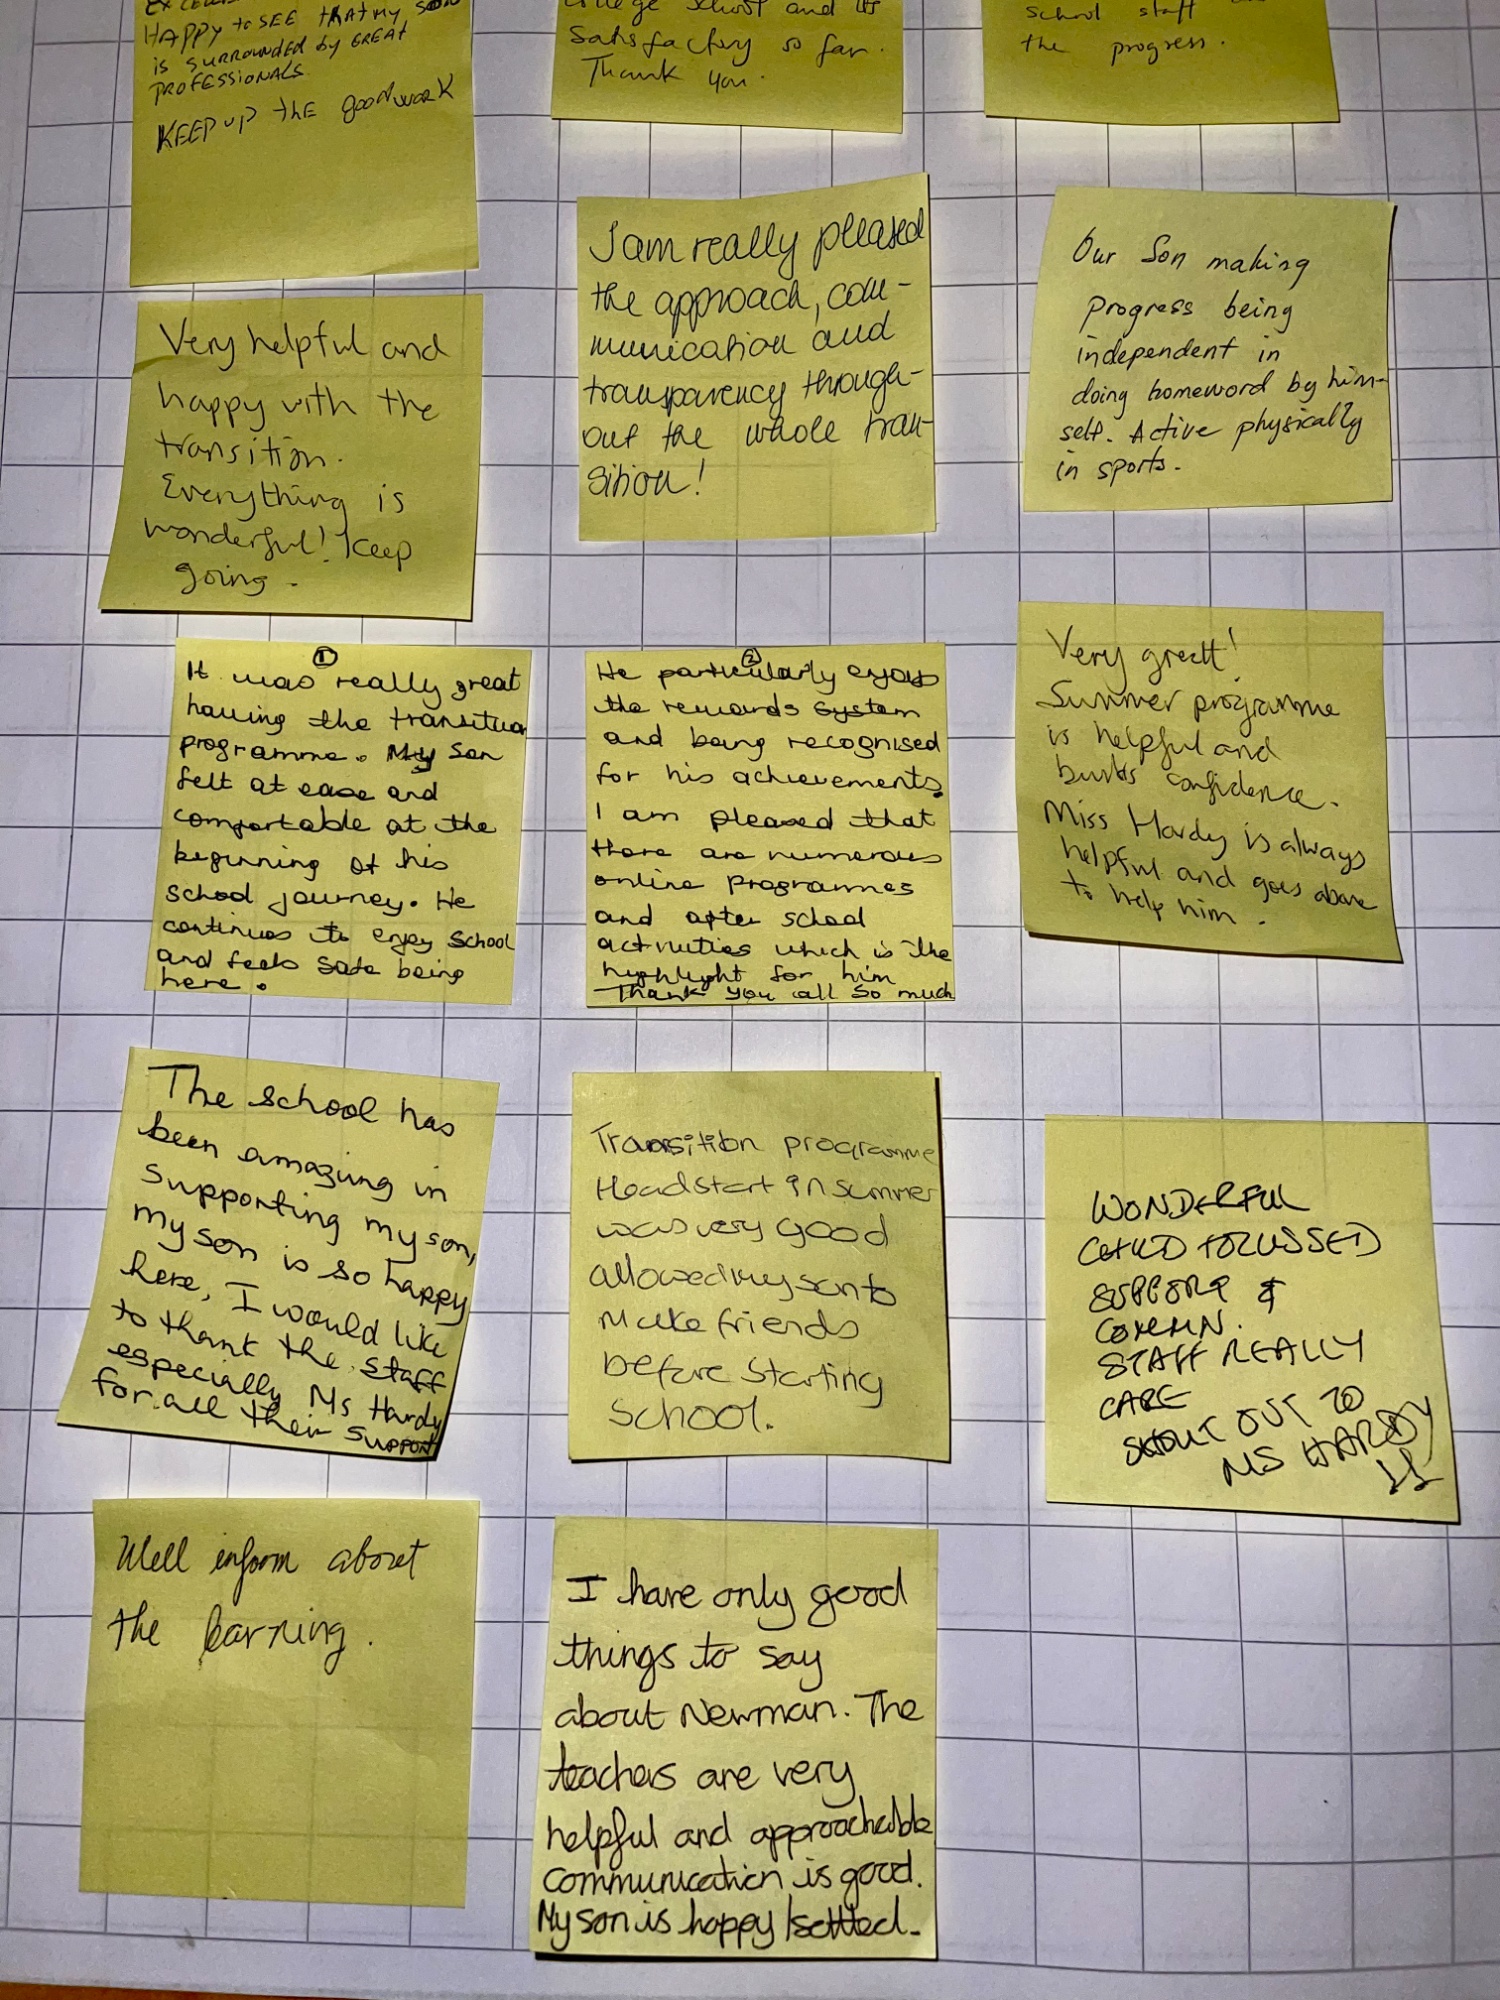 HAPPY to SEE that my son
is SURROUNDED by GREAT
PROFESSIONALS.
KEEP UP the good work
College School and its
Satisfactory so far.
Thank you.
school staff
the progress.
Very helpful and
happy with the
transition.
Everything is
wonderful! Keep
going.
I am really pleased
the approach, com-
munication and
transparency through-
out the whole tran-
sition!
Our Son making
Progress being
independent in
doing homeword by him-
self. Active physically
in sports.
①
It was really great
having the transition
programme. My son
felt at ease and
comfortable at the
beginning of his
school journey. He
continues to enjoy school
and feels safe being
here.
②
He particularly enjoys
the rewards system
and being recognised
for his achievements.
I am pleased that
there are numerous
online programmes
and after school
activities which is the
highlight for him
Thank you all so much
Very great!
Summer programme
is helpful and
builds confidence.
Miss Hardy is always
helpful and goes above
to help him.
The school has
been amazing in
supporting my son,
my son is so happy
here, I would like
to thank the staff
especially Ms Hardy
for all their support
Transition programme
Headstart in summer
was very good
allowed my son to
make friends
before starting
school.
WONDERFUL
CHILD FOCUSSED
SUPPORT &
COMMN.
STAFF REALLY
CARE
SHOUT OUT TO
MS HARDY
!!
Well inform about
the learning.
I have only good
things to say
about Newman. The
teachers are very
helpful and approachable
communication is good.
My son is happy/settled.